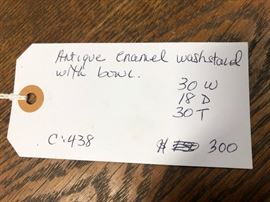 Antique enamel washstand
with bowl.
30 W
18 D
30 T
C:438
$ 300